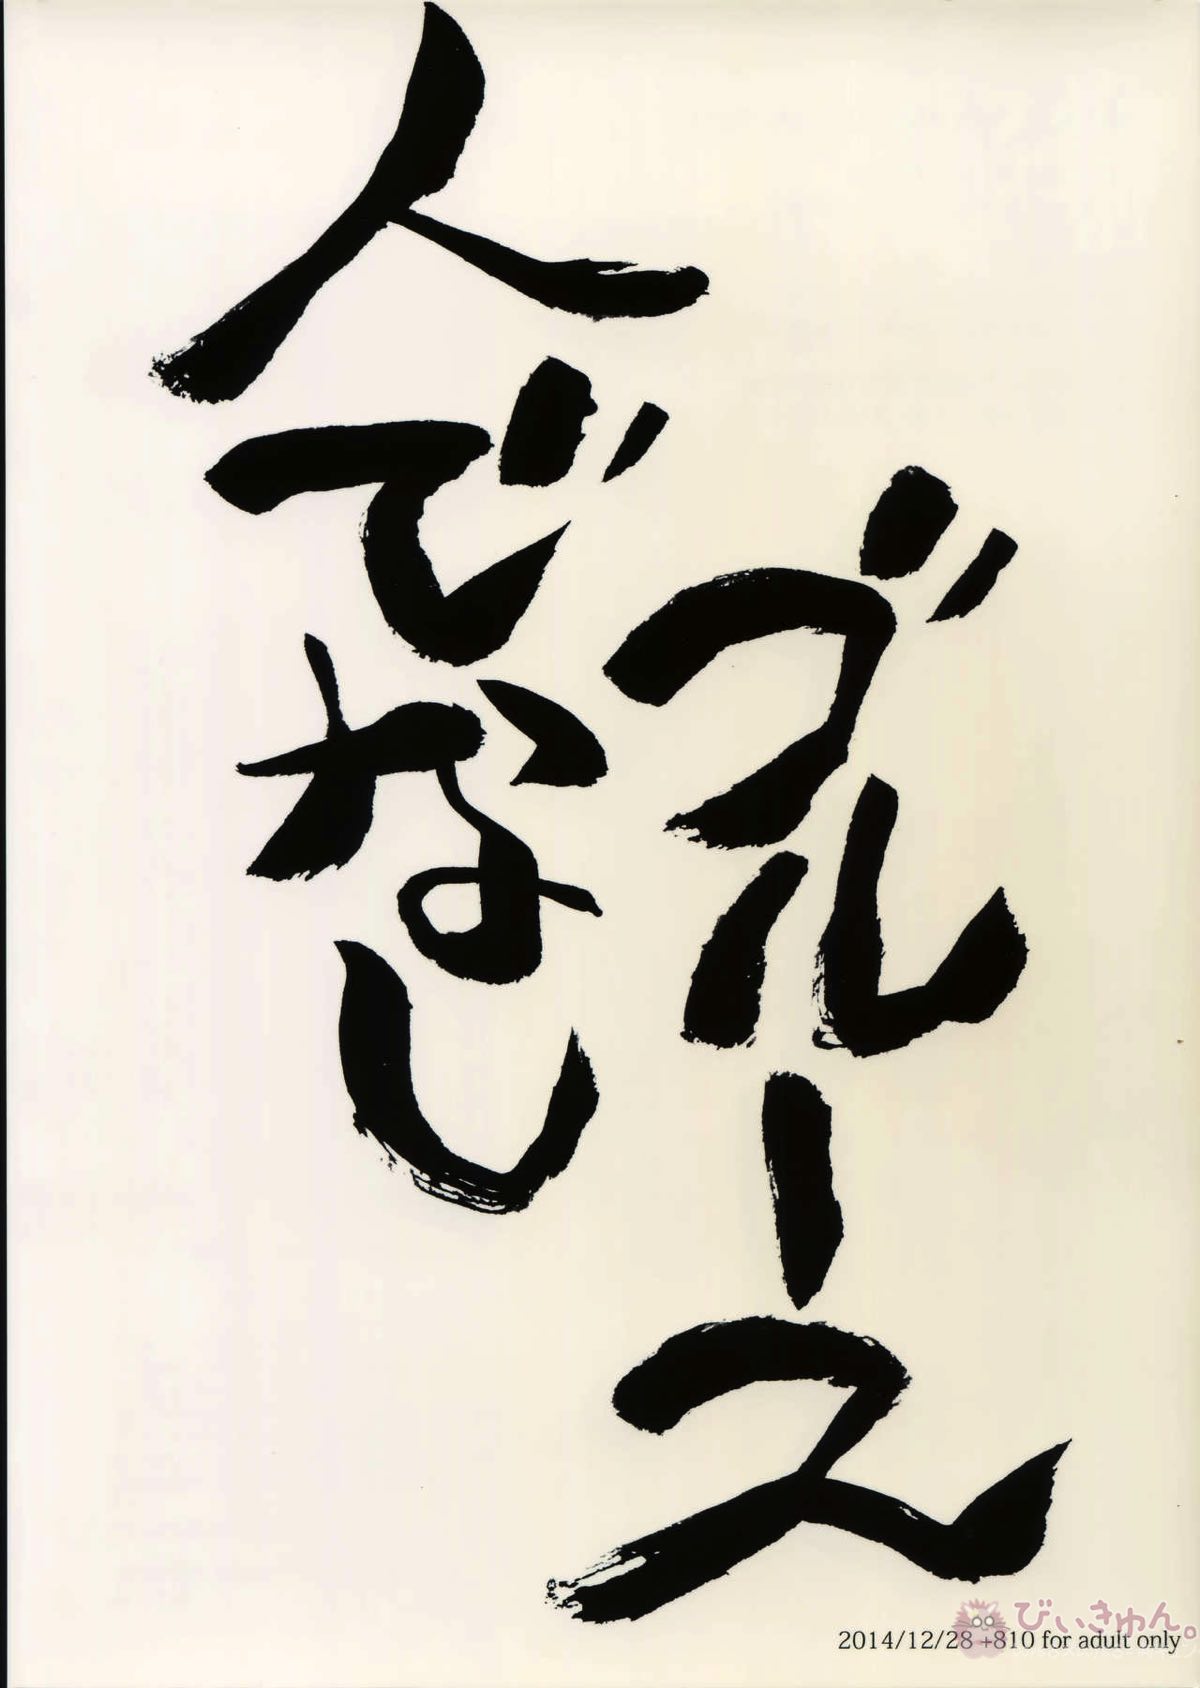 人でなし
ブルース
びぃきゅん。
2014/12/28 +810 for adult only